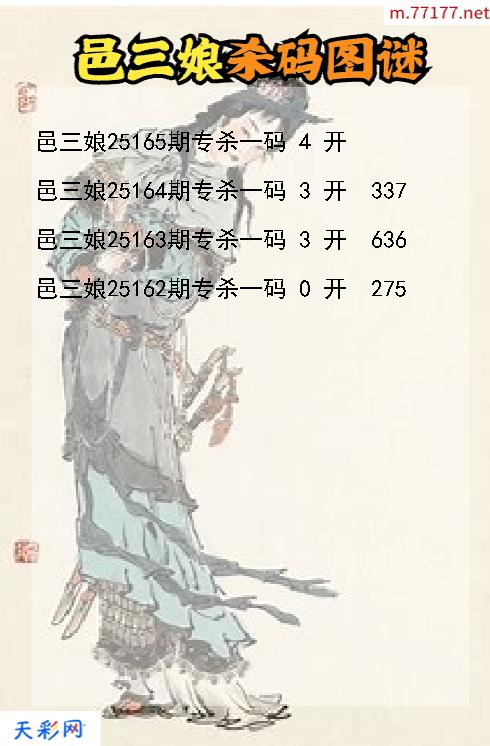 m.77177.net
邑三娘杀码图谜
邑三娘25165期专杀一码 4 开
邑三娘25164期专杀一码 3 开 337
邑三娘25163期专杀一码 3 开 636
邑三娘25162期专杀一码 0 开 275
天彩网